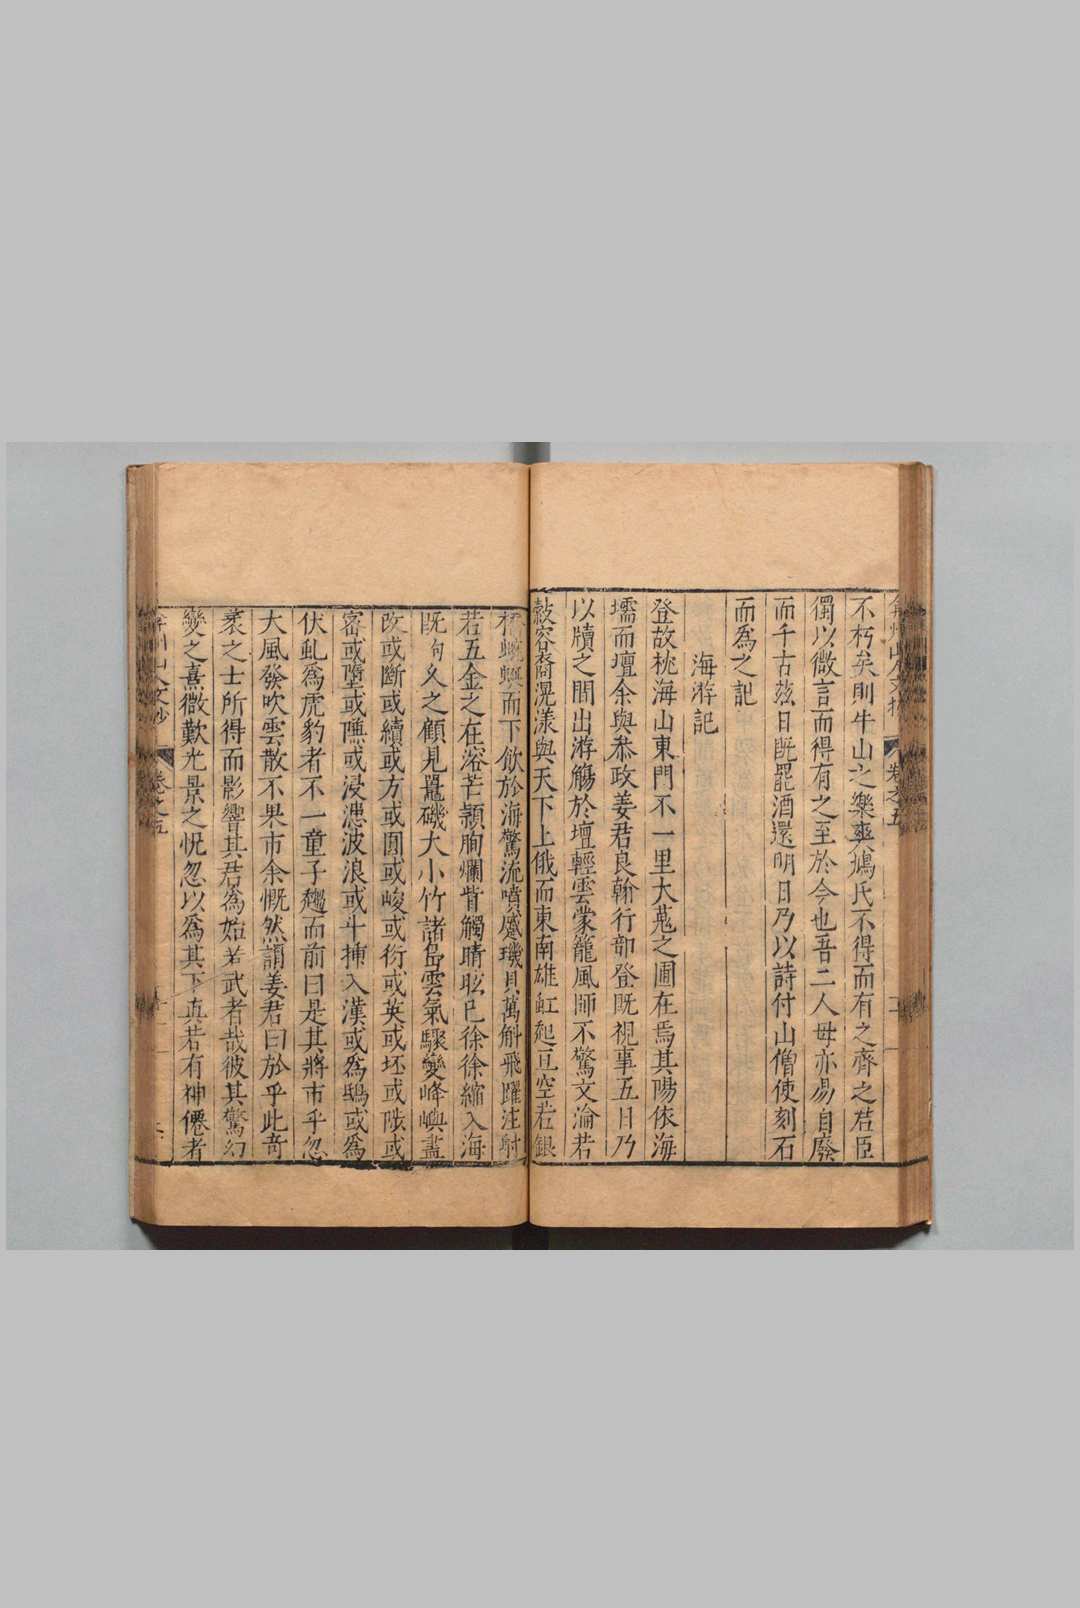 不朽矣則牛山之樂爽鳩氏不得而有之齊之君臣
獨以微言而得有之至於今也吾二人毋亦易自廢
而千古玆日既罷酒還明日乃以詩付山僧使刻石
而爲之記
海游記
登故枕海山東門不一里大蒐之圃在焉其陽依海
壖而壇余與叅政姜君良翰行部登既視事五日乃
以牘之間出游觴於壇輕雲蒙籠風師不驚文淪若
縠容裔滉漾與天下上俄而東南雄虹起亘空若銀
橋蜿與而下飲於海驚流噴蹙璣貝萬斛飛躍注射
若五金之在溶芒頴朐爛眥觸晴眩已徐徐縮入海
既句久之顧見鼉磯大小竹諸島雲氣驟變峰嶼盡
改或斷或續或方或圓或峻或衍或英或坯或陟或
密或墮或隒或浸漶波浪或斗揷入漢或爲鴟或爲
伏虬爲虎豹者不一童子趨而前曰是其將市乎忽
大風發吹雲散不果市余慨然謂姜君曰於乎此奇
袤之士所得而影響其君爲始若武者哉彼其驚幻
變之熹微歎光景之恍忽以爲其下真若有神僊者
弇州山人文抄
卷之五